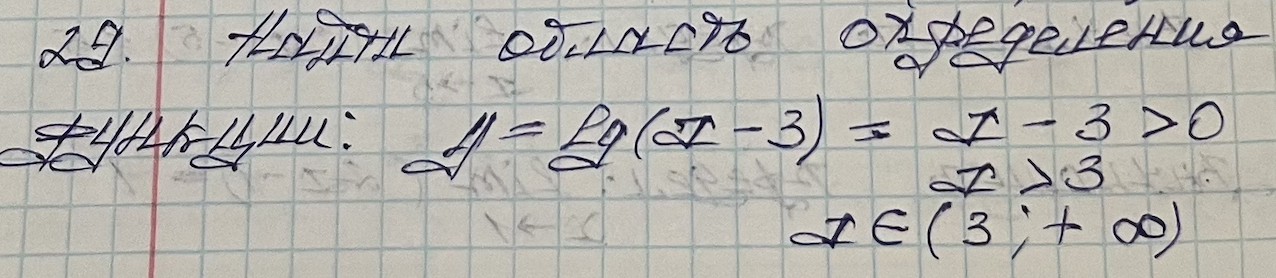 29. Найти область определения
функции: y = lg(x - 3) = x - 3 > 0
x > 3
x ∈ (3 ; + ∞)